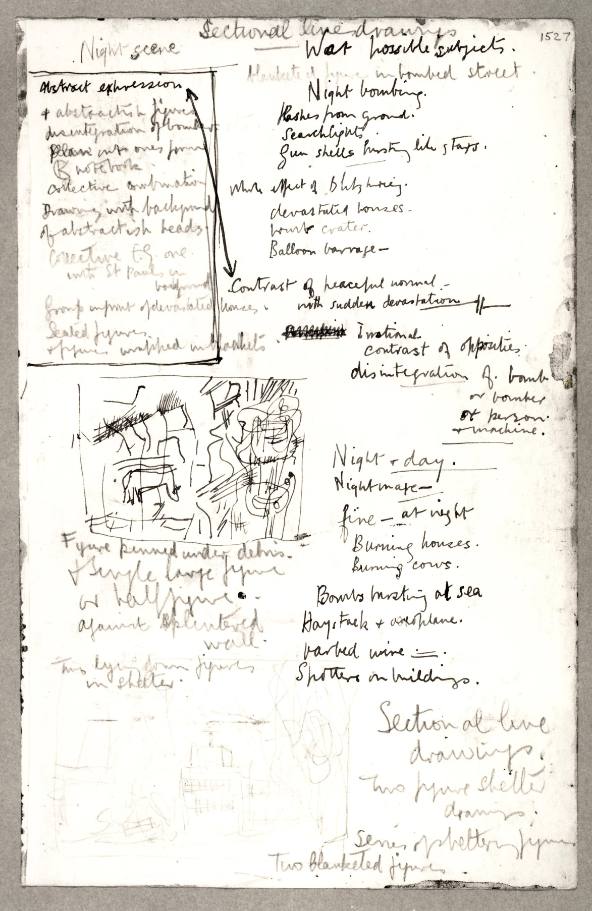 Sectional line drawings
1527
Night scene
War possible subjects.
Blanketed figures in bombed street
Night bombing.
flashes from ground.
Searchlights
Gun shells bursting like stars.
Whole effect of Blitzkrieg.
devastated houses.
bomb crater.
Balloon barrage—
Contrast of peaceful normal—
with sudden devastation
Irrational
contrast of opposites.
disintegration of bomb
or bomber
of person.
+ machine.
Night + day.
Nightmare—
fire— at night
Burning houses.
Burning cows.
Bombs bursting at sea
Haystack + aeroplane.
barbed wire
Spotters on buildings.
Abstract expression
+ abstractish figures
disintegration of bomber
plane into ones from
B notebook
collective combination
Drawing with background
of abstractish heads.
Collective E.G. one.
with St Pauls in
background
Group in front of devastated houses.
Seated figures
+ figures wrapped in blankets
Figure pinned under debris.
+ Single large figure
or half figure.
against splintered
wall.
Two lying down figures
in shelter.
Sectional line
drawings.
Two figure shelter
drawings.
Series of sheltering figures
Two Blanketed figures